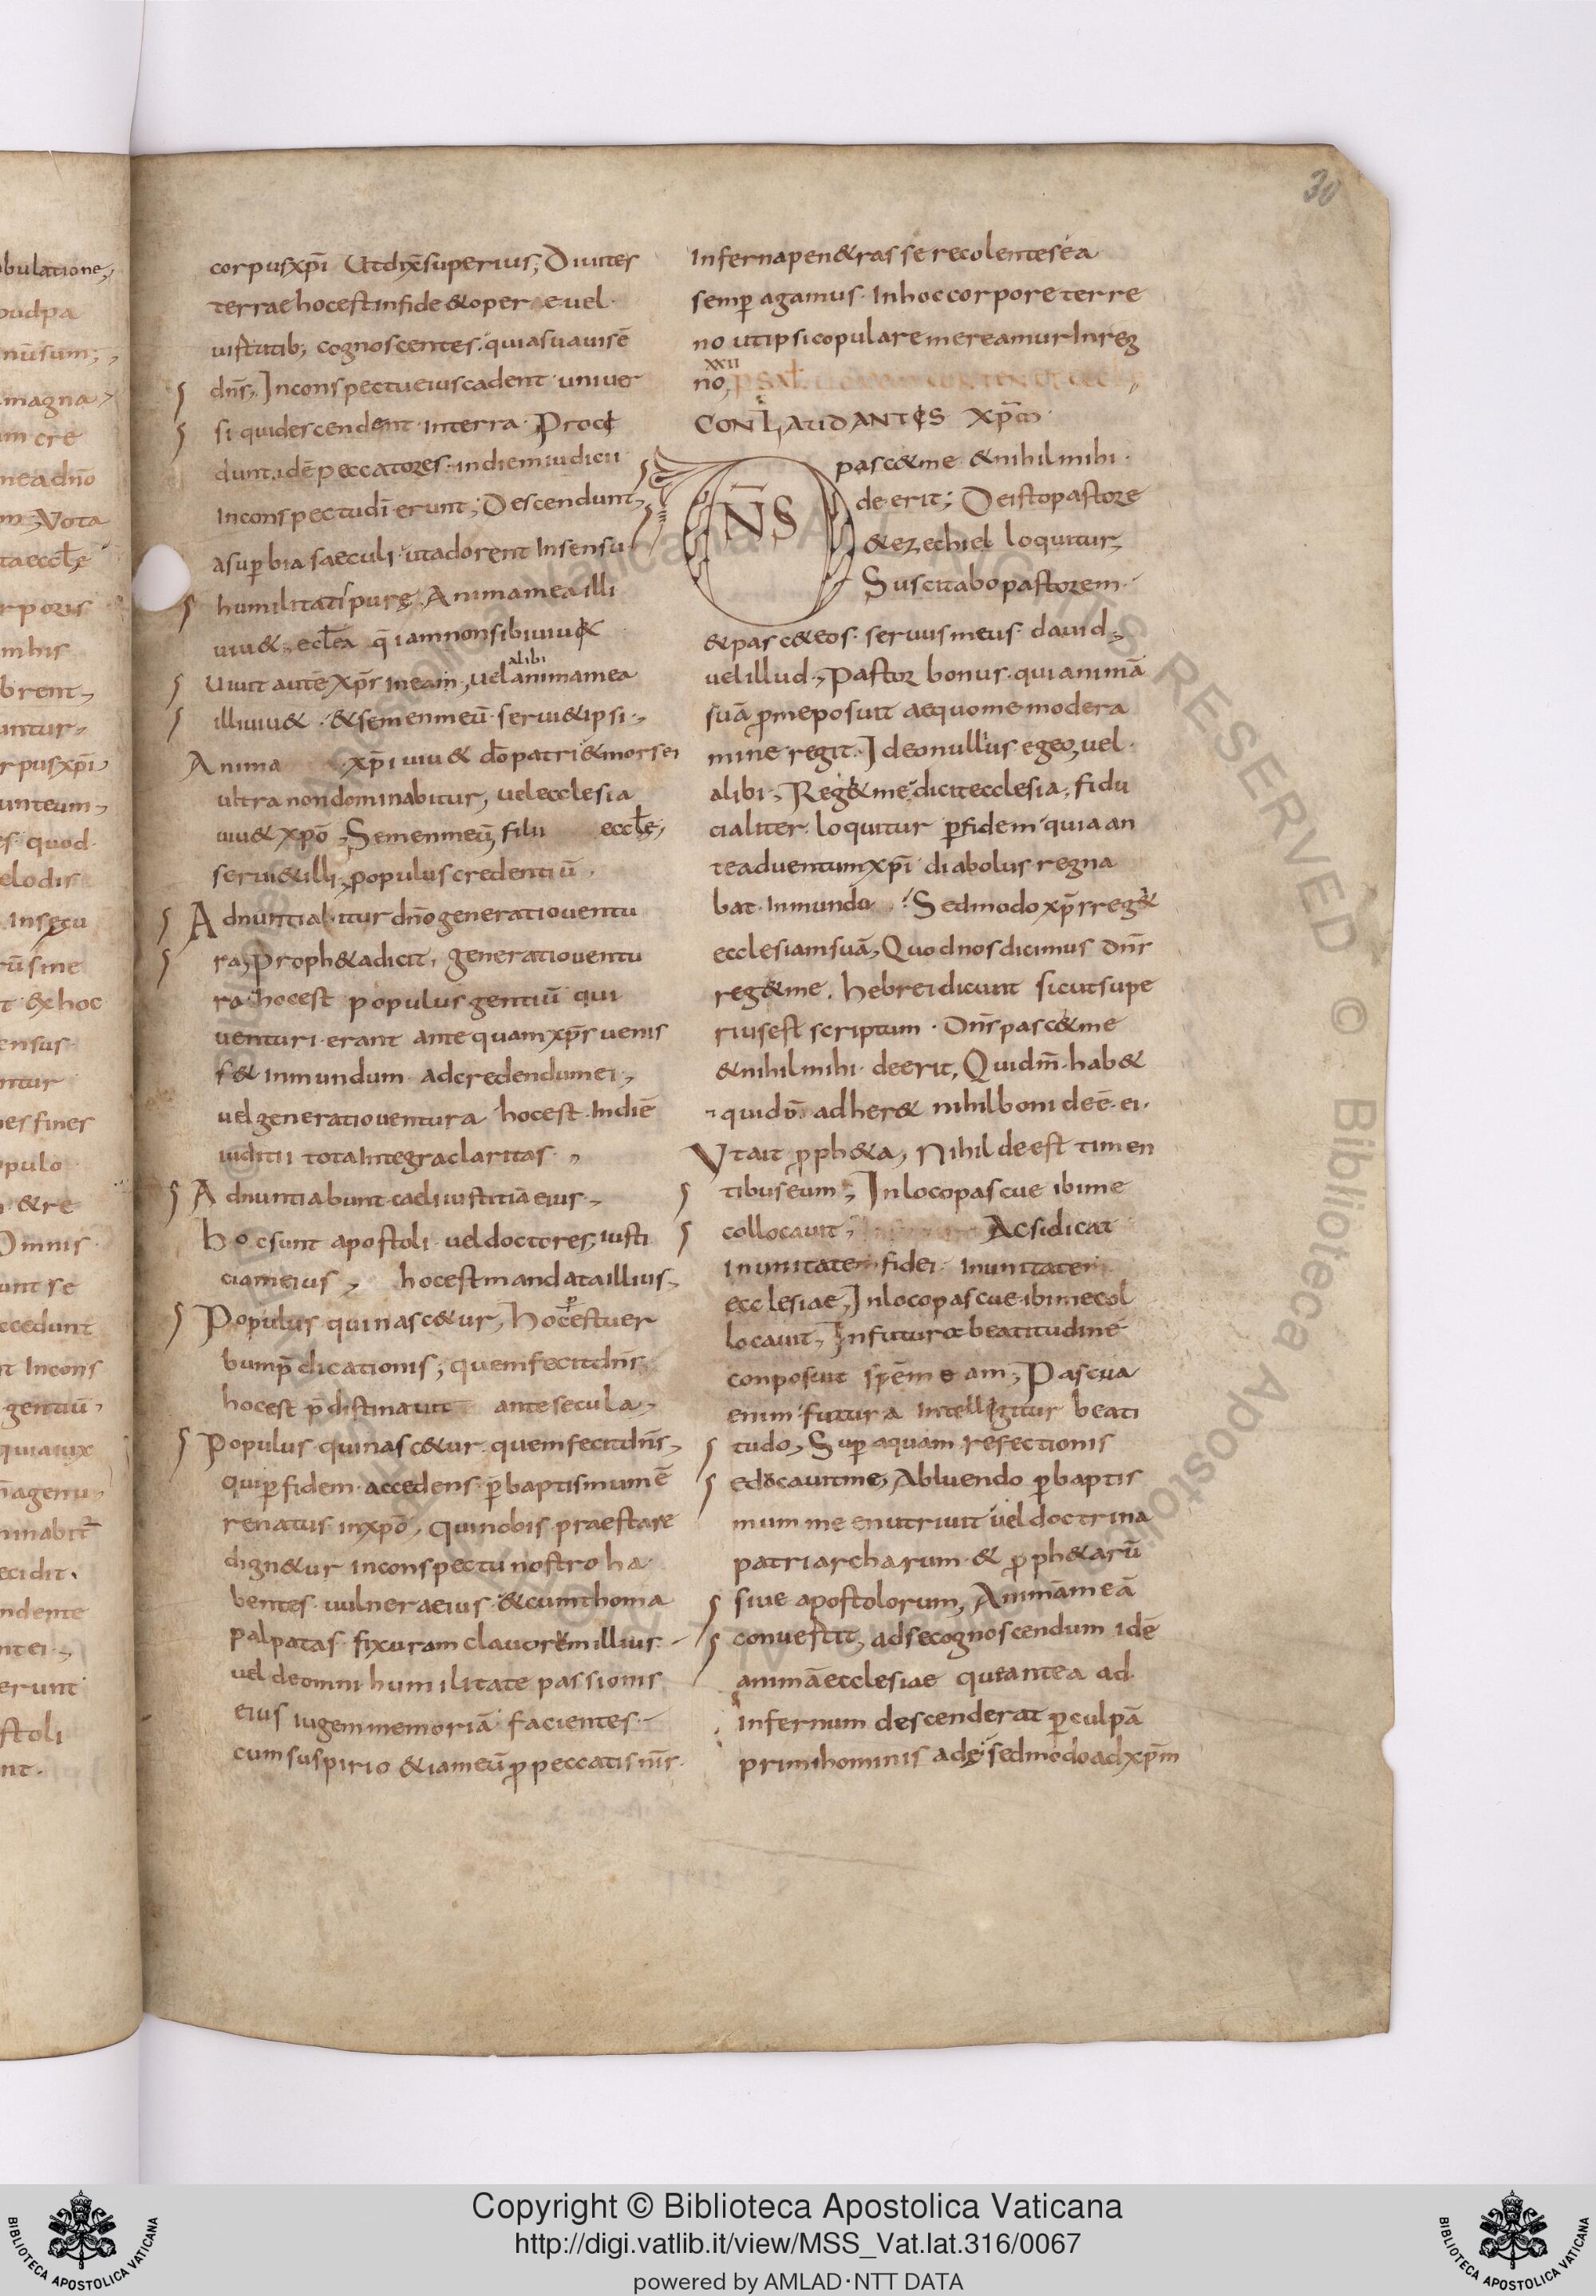 30
corpusxp̄i Utdix̄superius; Diuites
terrae hocestinfide &oper e uel
uirtutib; cognoscentes quiasuauisē
dn̄s; Inconspectueiuscadent uniuer
si quidescendent interra Procę
dunt idē peccatores indiemiudicii
Inconspectudī erunt; Descendunt,
asup̄bia saeculi utadorent Insensu
humilitatis purę, Animamea illi
uiu& eccl̄ea q̄ iamnonsibiuiu&
Uiuit autē xp̄s ineam, uel alibi animamea
illiuiu& &semenmeū serui&ipsi
Anima xp̄i uiu& dōpatri &morsei
ultra nondominabitur, uelecclesia
uiu& xp̄o Semenmeū, filii eccl̄ę,
serui&illi, populuscredentiū.
Adnuntiabitur dn̄ogeneratiouentu
ra, Proph&adicit, generatiouentu
ra hocest populusgentiū qui
uenturi erant antequamxp̄s uenis
s& inmundum adcredendumei,
uelgeneratiouentura hocest Indiē
iuditii totaIntegraclaritas
Adnuntiabunt caeliiustitiāeius,
hocsunt apostoli ueldoctores, iusti
ciameius, hocestmandataillius,
Populus quinasc&ur, hocestuer
bump̄dicationis; quemfecitdn̄s
hocest p̄distinauit antesecula,
Populus quinasc&ur quemfecitdn̄s,
quip̄fidem accedens p̄baptismumē
renatus inxp̄o, quinobis praestare
dign&ur inconspectunostro ha
bentes uulneraeius &cumthoma
palpatas fixuram clauorēmillius
uel deomni humilitate passionis
eius iugemmemoriā facientes
cumsuspirio &iameū p̄peccatisnr̄is
Infernapen&rasserecolentes ea
semp̄ agamus Inhoccorporeterre
no utipsicopularemereamurInreg
xxii
no,
CONLAUDANTES XP̄M
DN̄S pasc&me &nihilmihi
deerit; Deistopastore
&ezechiel loquitur,
Suscitabopastorem
&pasc&eos seruusmeus dauid,
uelillud, Pastor bonus quianimā
suā p̄meposuit aequomemodera
mine regit. Ideonullius egeo, uel
alibi, Reg&me dicitecclesia, fidu
cialiter loquitur p̄fidem quiaan
teaduentumxp̄i diabolus regna
bat Inmundo Sedmodo xp̄sreg&
ecclesiamsuā, Quodnosdicimus dn̄s
reg&me. hebreidicunt sicutsupe
riusest scriptum Dn̄spasc&me
&nihilmihi deerit, Quidn̄m hab&
quidō adher& nihilboni deē ei
Utait p̄ph&a, Nihildeest timen
tibuseum, Inlocopascue ibime
collocauit, Acsidicat
Inunitatem fidei Inunitatem
ecclesiae, Inlocopascue ibimecol
locauit, Infuturabeatitudine
conposuit spem eam, Pascua
enim futura intelligitur beati
tudo, Sup̄ aquam refectionis
edocauitme, Abluendo p̄baptis
mum me enutriuit ueldoctrina
patriarcharum & p̄ph&arū
siue apostolorum, Animāmeā
conuertit, adsecognoscendum idē
animāecclesiae quiantea ad
infernum descenderat p̄culpā
primihominis adę sedmodoadxp̄m
bulatione,
magna
neadn̄o
Vota
brent,
untur
quod
Insecu
&xhoc
ensus
ntur
fines
pulo
&re
Omnis
unt se
ccedunt
Incons
gentiū
ecidit.
ndente
erunt
stoli
nt.
Copyright © Biblioteca Apostolica Vaticana
http://digi.vatlib.it/view/MSS_Vat.lat.316/0067
powered by AMLAD·NTT DATA
BIBLIOTECA APOSTOLICA VATICANA
BIBLIOTECA APOSTOLICA VATICANA